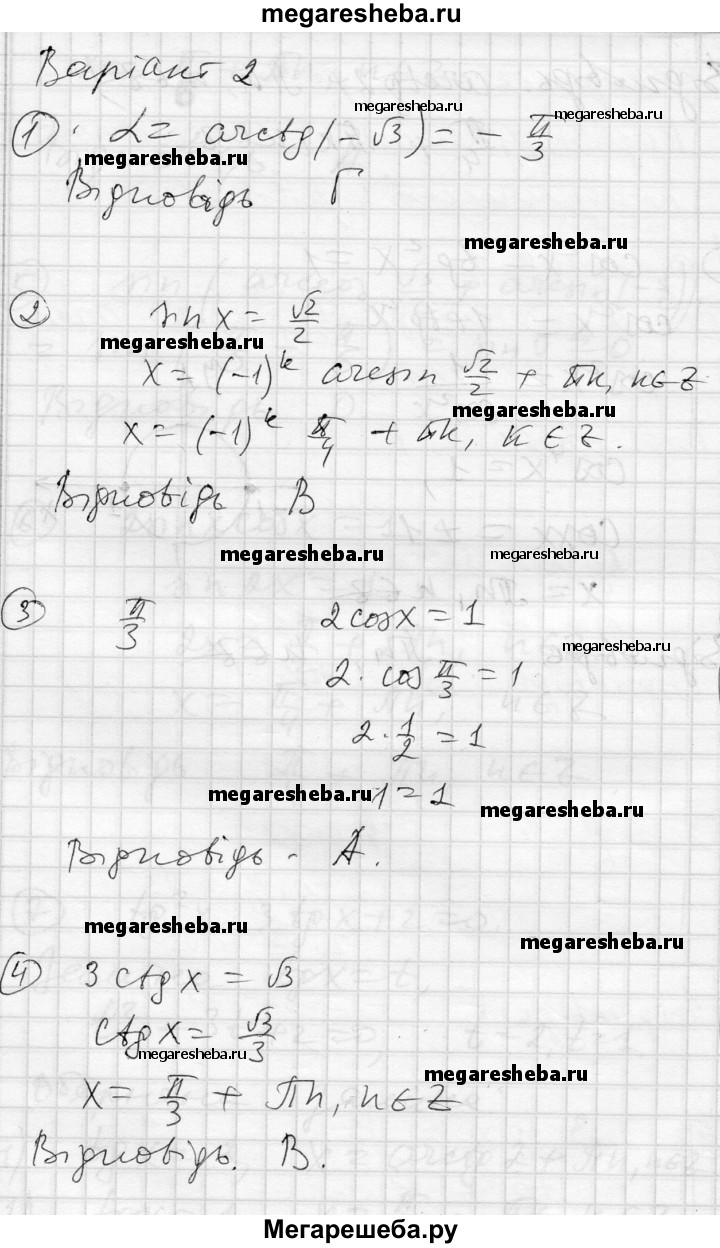 megaresheba.ru
Варіант 2
megaresheba.ru
① α = arctg(-√3) = - π/3
megaresheba.ru
Відповідь Г
megaresheba.ru
② sin x = √2/2
megaresheba.ru
x = (-1)^k arcsin √2/2 + πk, k∈Z
megaresheba.ru
x = (-1)^k π/4 + πk, k∈Z.
Відповідь В
megaresheba.ru megaresheba.ru
③ π/3 2cosx = 1
megaresheba.ru
2 · cos π/3 = 1
2 · 1/2 = 1
megaresheba.ru 1 = 1 megaresheba.ru
Відповідь - А.
megaresheba.ru
megaresheba.ru
④ 3 ctg x = √3
ctg x = √3/3
megaresheba.ru
megaresheba.ru
x = π/3 + πn, n∈Z
Відповідь. В.
megaresheba.ru
Мегарешеба.ру